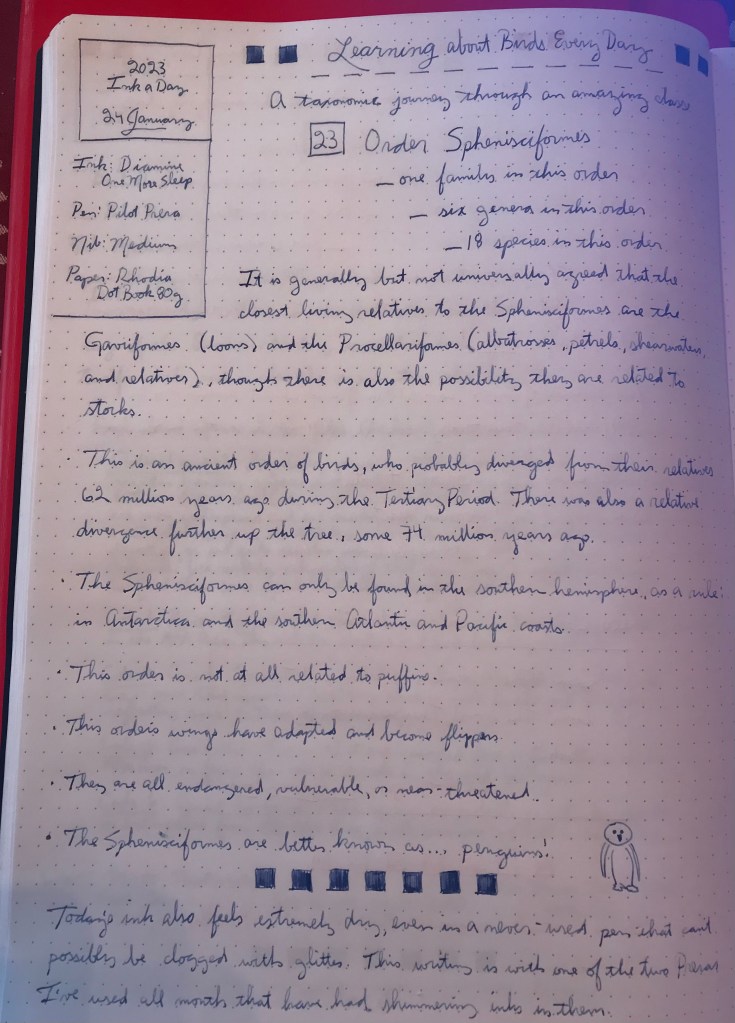 2023
Ink a Day
24 January
Ink: Diamine
One More Sleep
Pen: Pilot Prera
Nib: Medium
Paper: Rhodia
Dot Book 80g
Learning about Birds Every Day
A taxonomic journey through an amazing class
23 Order Sphenisciformes
— one family in this order
— six genera in this order
— 18 species in this order
It is generally but not universally agreed that the
closest living relatives to the Sphenisciformes are the
Gaviiformes (loons) and the Procellariiformes (albatrosses, petrels, shearwaters,
and relatives), though there is also the possibility they are related to
storks.
· This is an ancient order of birds, who probably diverged from their relatives
62 million years ago during the Tertiary Period. There was also a relative
divergence further up the tree, some 74 million years ago.
· The Sphenisciformes can only be found in the southern hemisphere, as a rule:
in Antarctica and the southern Atlantic and Pacific coasts.
· This order is not at all related to puffins.
· This order's wings have adapted and become flippers.
· They are all endangered, vulnerable, or near-threatened.
· The Sphenisciformes are better known as... penguins!
Today's ink also feels extremely dry, even in a never-used pen that can't
possibly be clogged with glitter. This writing is with one of the two Preras
I've used all month that have had shimmering inks in them.